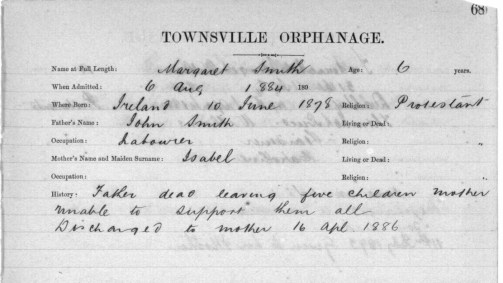 68
TOWNSVILLE ORPHANAGE.
Name at Full Length: Margaret Smith Age: 6 years.
When Admitted: 6 Aug 1884 180
Where Born: Ireland 10 June 1878 Religion: Protestant
Father's Name: John Smith Living or Dead:
Occupation: Labourer Religion: "
Mother's Name and Maiden Surname: Isabel Living or Dead:
Occupation: Religion: "
History: Father dead leaving five children mother
unable to support them all
Discharged to mother 16 Apl 1886